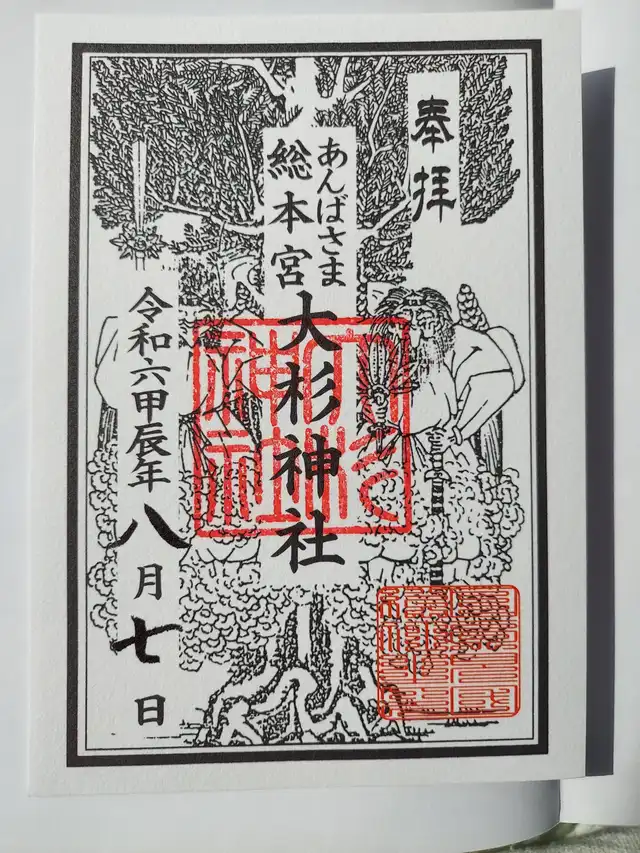 奉拝
あんばさま
総本宮
大杉神社
令和六甲辰年
八月七日
大杉神社